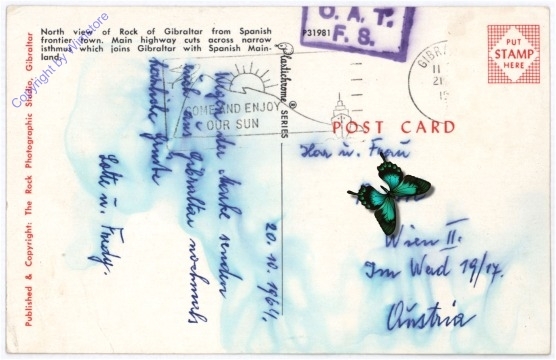 North view of Rock of Gibraltar from Spanish
frontier town. Main highway cuts across narrow
isthmus which joins Gibraltar with Spanish Main-
land.
Copyright by Williestore
Published & Copyright: The Rock Photographic Studio, Gibraltar
P31981
O. A. T.
F. S.
Plastichrome ® SERIES
COME AND ENJOY
OUR SUN
GIBRA
PUT
STAMP
HERE
POST CARD
20. 10. 1964.
Wegen der Marke senden
wir aus Gibraltar nochmals
Grüße
Lotte u. Fredy.
Herr u. Frau
Wien II.
Im Werd 19/17.
Austria